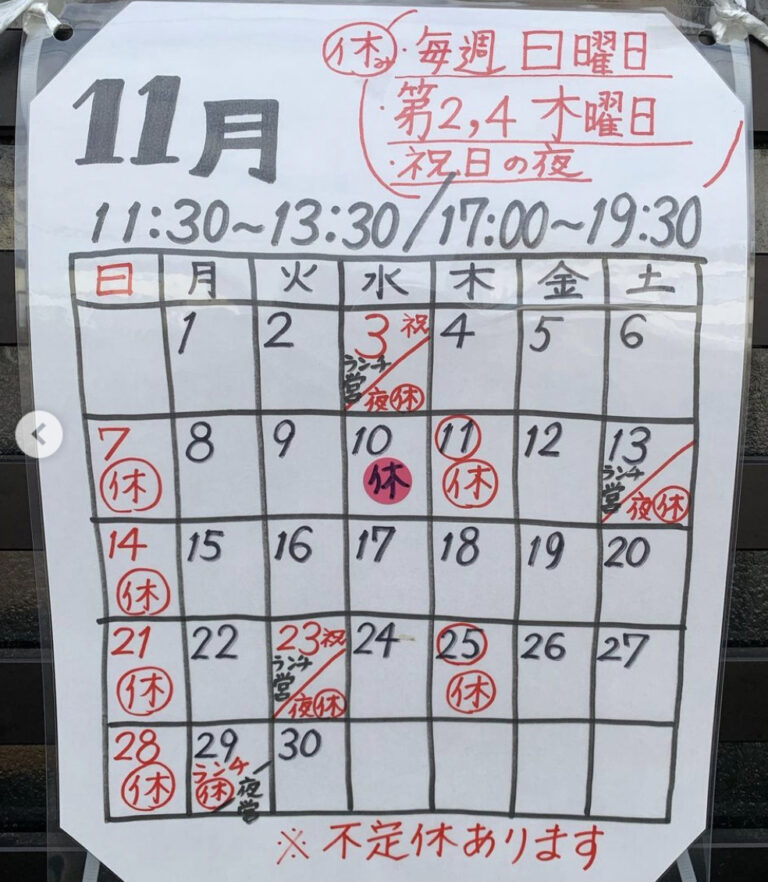 休み・毎週 日曜日
・第2,4 木曜日
・祝日の夜
11月
11:30~13:30/17:00~19:30
日 月 火 水 木 金 土
1 2 3祝 4 5 6
ランチ営/夜休
7 8 9 10 11 12 13
休 休 休 ランチ営/夜休
14 15 16 17 18 19 20
休
21 22 23祝 24 25 26 27
休 ランチ営/夜休 休
28 29 30
休 ランチ休/夜営
※不定休あります